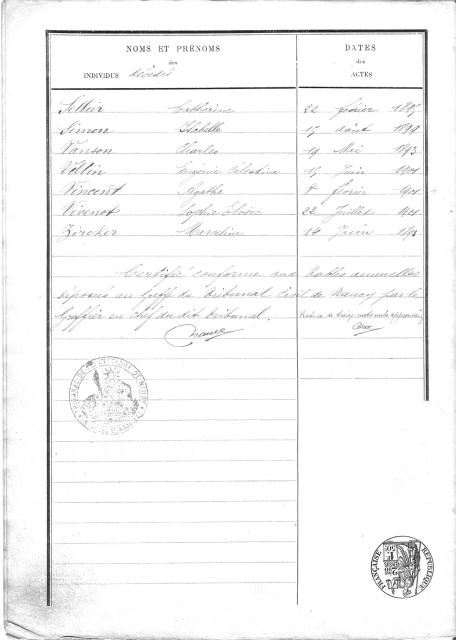 NOMS ET PRÉNOMS
des
INDIVIDUS décédés
DATES
des
ACTES
Sellier Catherine 22 février 1897
Simon Isabelle 17 août 1899
Vanson Charles 19 Mai 1893
Voltin Eugénie Célestine 15 Juin 1901
Vincent Agathe 8 février 1901
Vivenot Sophie Eloïse 22 Juillet 1901
Zircher Marceline 14 Juin 1893
Certifié conforme aux Tables annuelles
déposées au Greffe du Tribunal Civil de Nancy par le
Greffier en chef du dit tribunal.
mots nuls approuvés
RÉPUBLIQUE FRANÇAISE